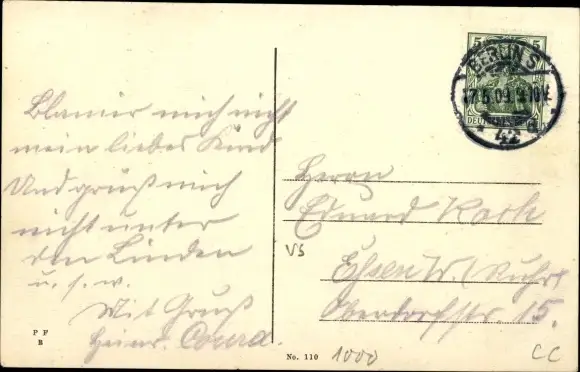 Blamier mich nicht
mein liebes Kind
Und grüß mich
nicht unter
den Linden
u. s. w.
Mit Gruß
Heinr. Conrad.
P F
B
5 5
BERLIN S
17.5.09. 9-10V.
DEUTSCHES REICH
* 42
Herrn
Eduard
Essen W. (Ruhr)
Oberdorfstr. 15.
VS
No. 110
1000
CC